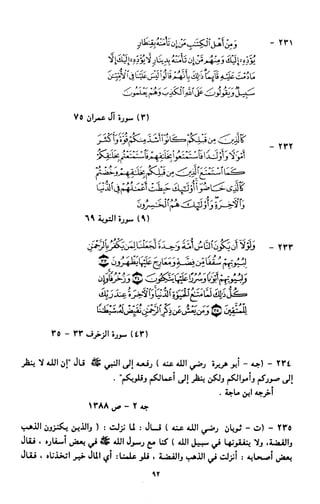 ٢٣١ - وَمِنْ أَهْلِ الْكِتَٰبِ مَنْ إِن تَأْمَنْهُ بِقِنطَارٍ
يُؤَدِّهِۦٓ إِلَيْكَ وَمِنْهُم مَّنْ إِن تَأْمَنْهُ بِدِينَارٍ لَّا يُؤَدِّهِۦٓ إِلَيْكَ إِلَّا
مَا دُمْتَ عَلَيْهِ قَآئِمًا ذَٰلِكَ بِأَنَّهُمْ قَالُوا۟ لَيْسَ عَلَيْنَا فِى ٱلْأُمِّيِّـۧنَ
سَبِيلٌ وَيَقُولُونَ عَلَى ٱللَّهِ ٱلْكَذِبَ وَهُمْ يَعْلَمُونَ
(٣) سورة آل عمران ٧٥
٢٣٢ - كَٱلَّذِينَ مِن قَبْلِكُمْ كَانُوٓا۟ أَشَدَّ مِنكُمْ قُوَّةً وَأَكْثَرَ
أَمْوَٰلًا وَأَوْلَٰدًا فَٱسْتَمْتَعُوا۟ بِخَلَٰقِهِمْ فَٱسْتَمْتَعْتُم بِخَلَٰقِكُمْ
كَمَا ٱسْتَمْتَعَ ٱلَّذِينَ مِن قَبْلِكُم بِخَلَٰقِهِمْ وَخُضْتُمْ
كَٱلَّذِى خَاضُوٓا۟ أُو۟لَٰٓئِكَ حَبِطَتْ أَعْمَٰلُهُمْ فِى ٱلدُّنْيَا
وَٱلْءَاخِرَةِ وَأُو۟لَٰٓئِكَ هُمُ ٱلْخَٰسِرُونَ
(٩) سورة التوبة ٦٩
٢٣٣ - وَلَوْلَآ أَن يَكُونَ ٱلنَّاسُ أُمَّةً وَٰحِدَةً لَّجَعَلْنَا لِمَن يَكْفُرُ بِٱلرَّحْمَٰنِ
لِبُيُوتِهِمْ سُقُفًا مِّن فِضَّةٍ وَمَعَارِجَ عَلَيْهَا يَظْهَرُونَ ٣٣
وَلِبُيُوتِهِمْ أَبْوَٰبًا وَسُرُرًا عَلَيْهَا يَتَّكِـُٔونَ ٣٤ وَزُخْرُفًا وَإِن
كُلُّ ذَٰلِكَ لَمَّا مَتَٰعُ ٱلْحَيَوٰةِ ٱلدُّنْيَا وَٱلْءَاخِرَةُ عِندَ رَبِّكَ
لِلْمُتَّقِينَ ٣٥ وَمَن يَعْشُ عَن ذِكْرِ ٱلرَّحْمَٰنِ نُقَيِّضْ لَهُۥ شَيْطَٰنًا
(٤٣) سورة الزخرف ٣٣ - ٣٥
٢٣٤ - (جه - أبو هريرة رضي الله عنه) رفعه إلى النبي ﷺ قال "إن الله لا ينظر
إلى صوركم وأموالكم ولكن ينظر إلى أعمالكم وقلوبكم".
أخرجه ابن ماجة.
جه ٢ - ص ١٣٨٨
٢٣٥ - (ت - ثوبان رضي الله عنه) قال: لما نزلت: (والذين يكنزون الذهب
والفضة، ولا ينفقونها في سبيل الله) كنا مع رسول الله ﷺ في بعض أسفاره، فقال
بعض أصحابه: أنزلت في الذهب والفضة، فلو علمنا: أي المال خير اتخذناه، فقال
٩٢